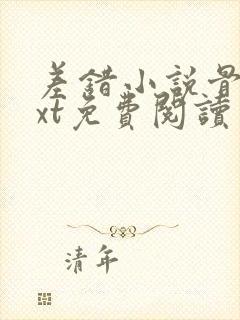 差錯小説骨
xt免費閱讀
清年